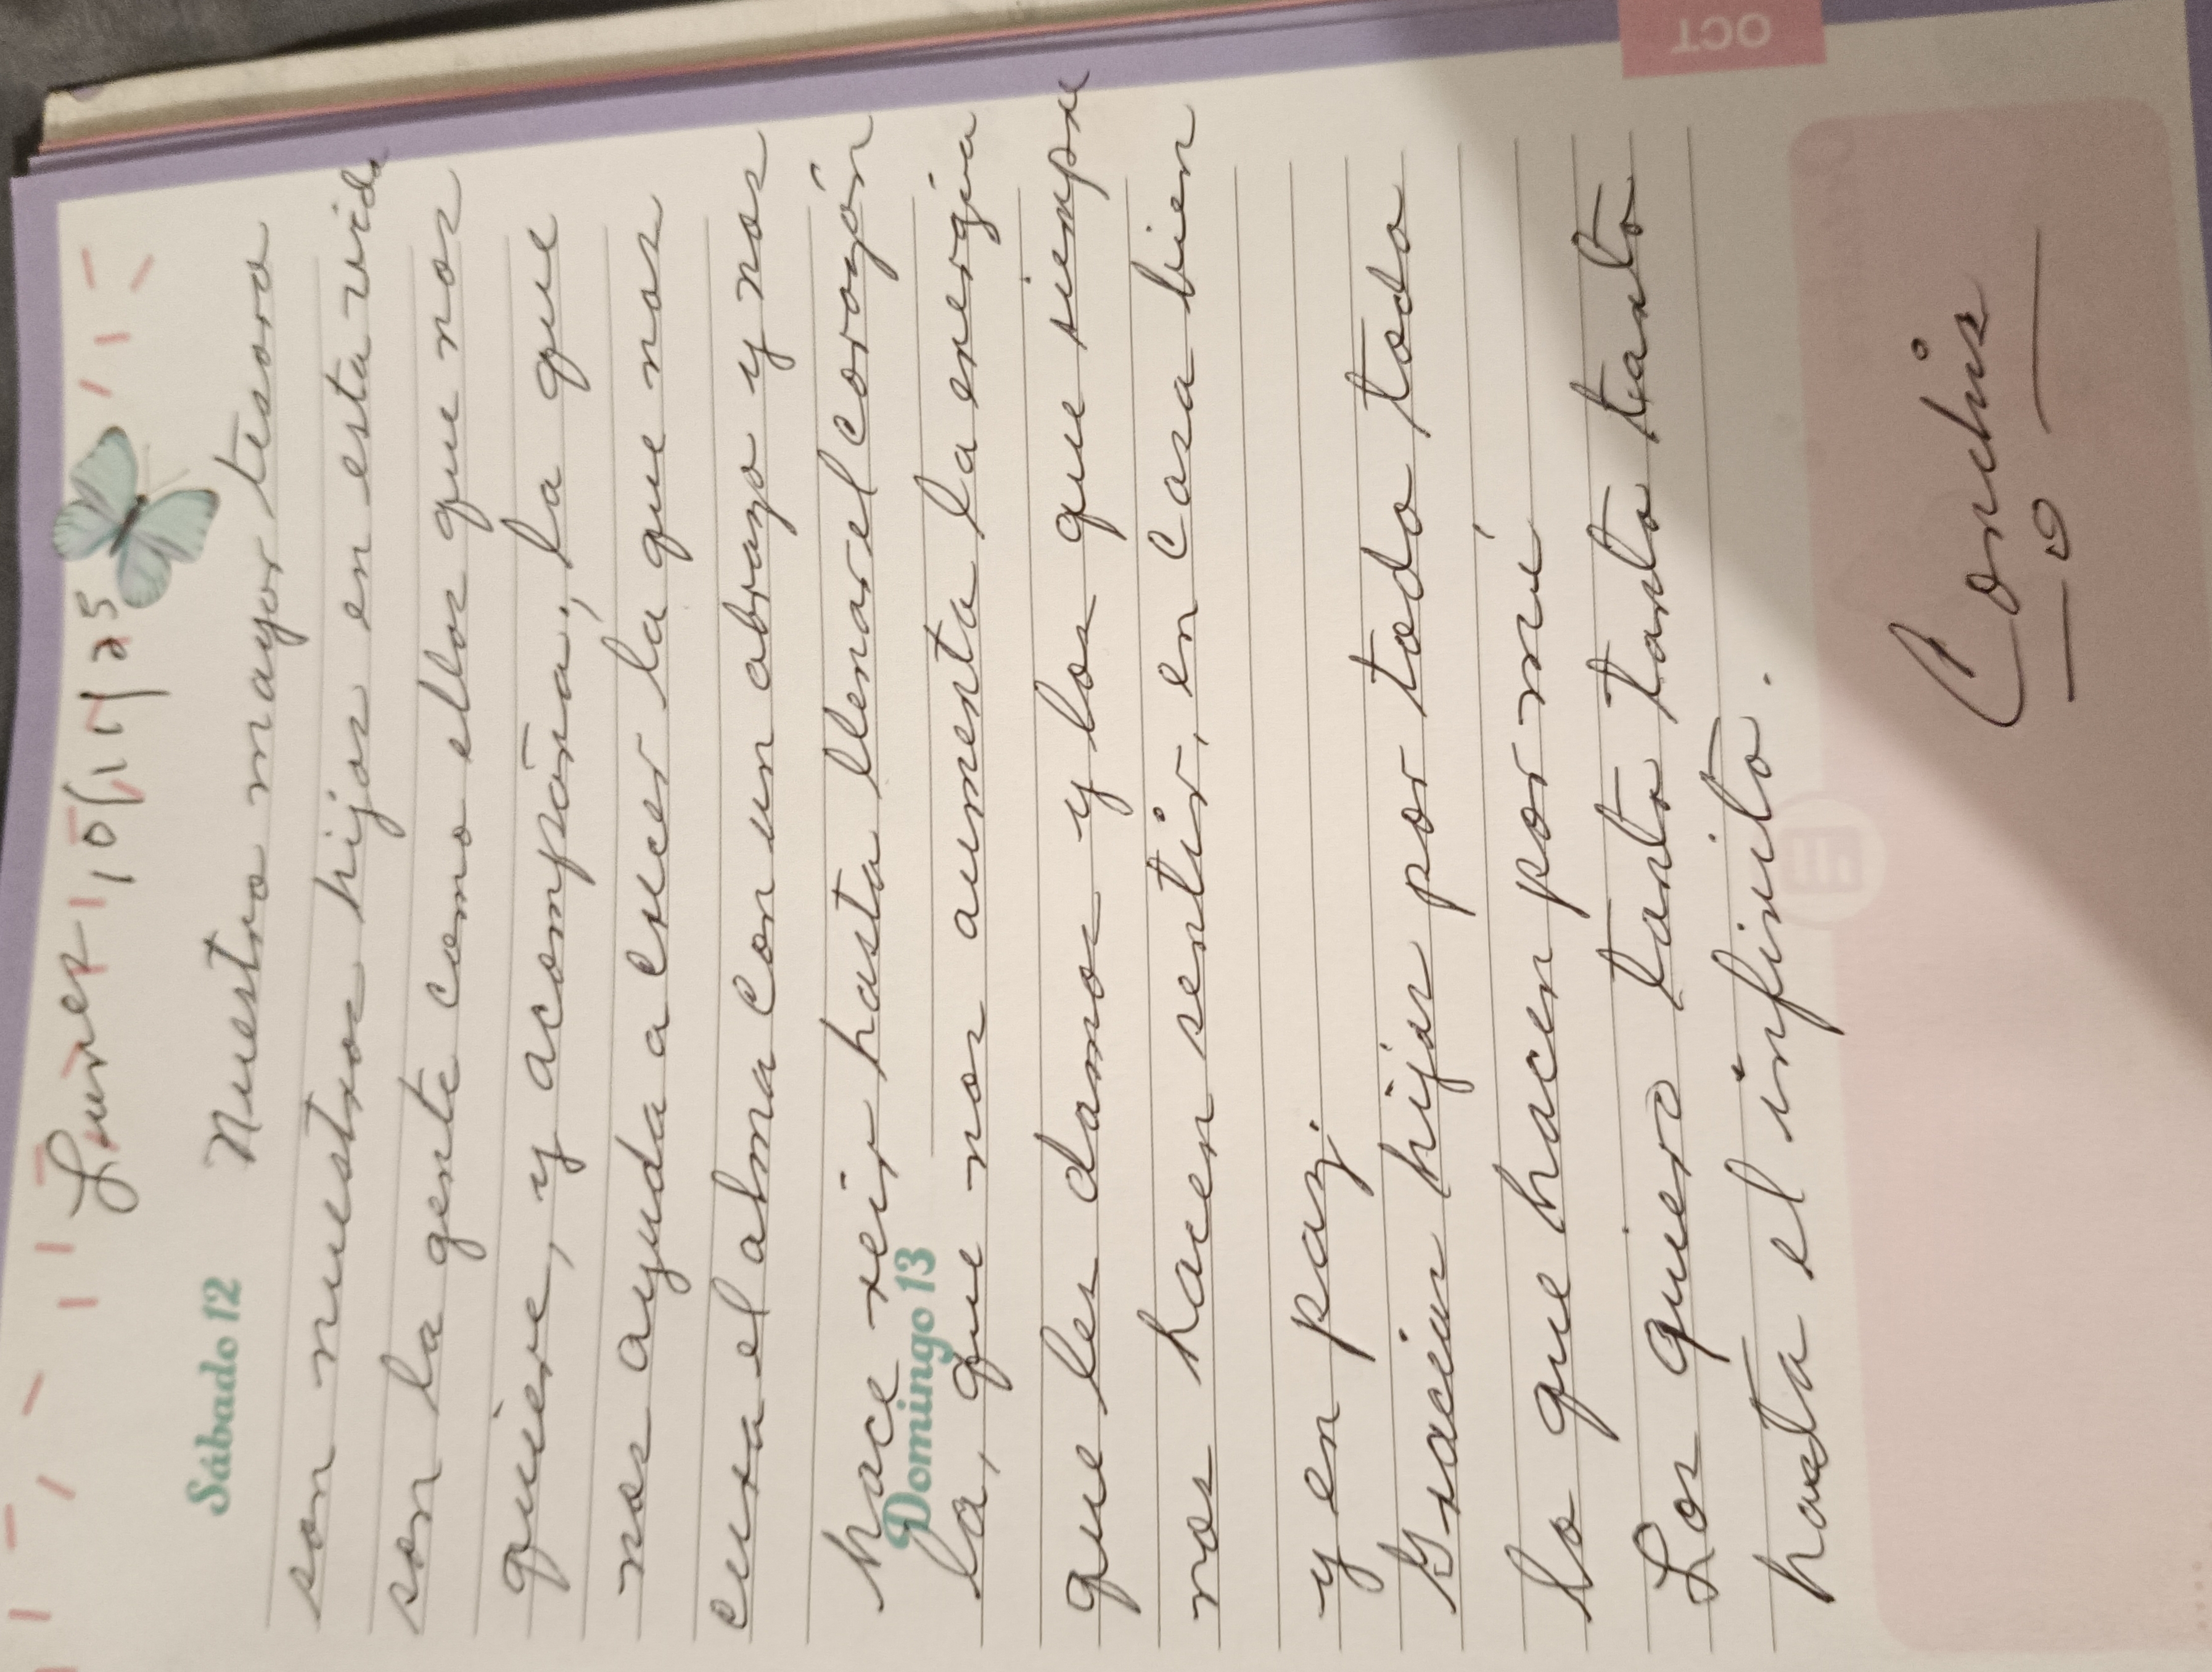 Lunes 10/11/25
Sábado 12
Nuestro mayor tesoro
son nuestros hijos en esta vida
son la gente como ellos que nos
quiere, y acompaña; la que
nos ayuda a crecer la que nos
cura el alma con un abrazo y nos
hace reir hasta llenar el corazón
Domingo 13
la, que nos aumenta la energía
que les damos y los que siempre
nos hacen sentir, en casa bien
y en paz.
Gracias hijos por todo todo
lo que hacen por mí
Los quiero tanto tanto tanto
hasta el infinito.
Conchis
OCT